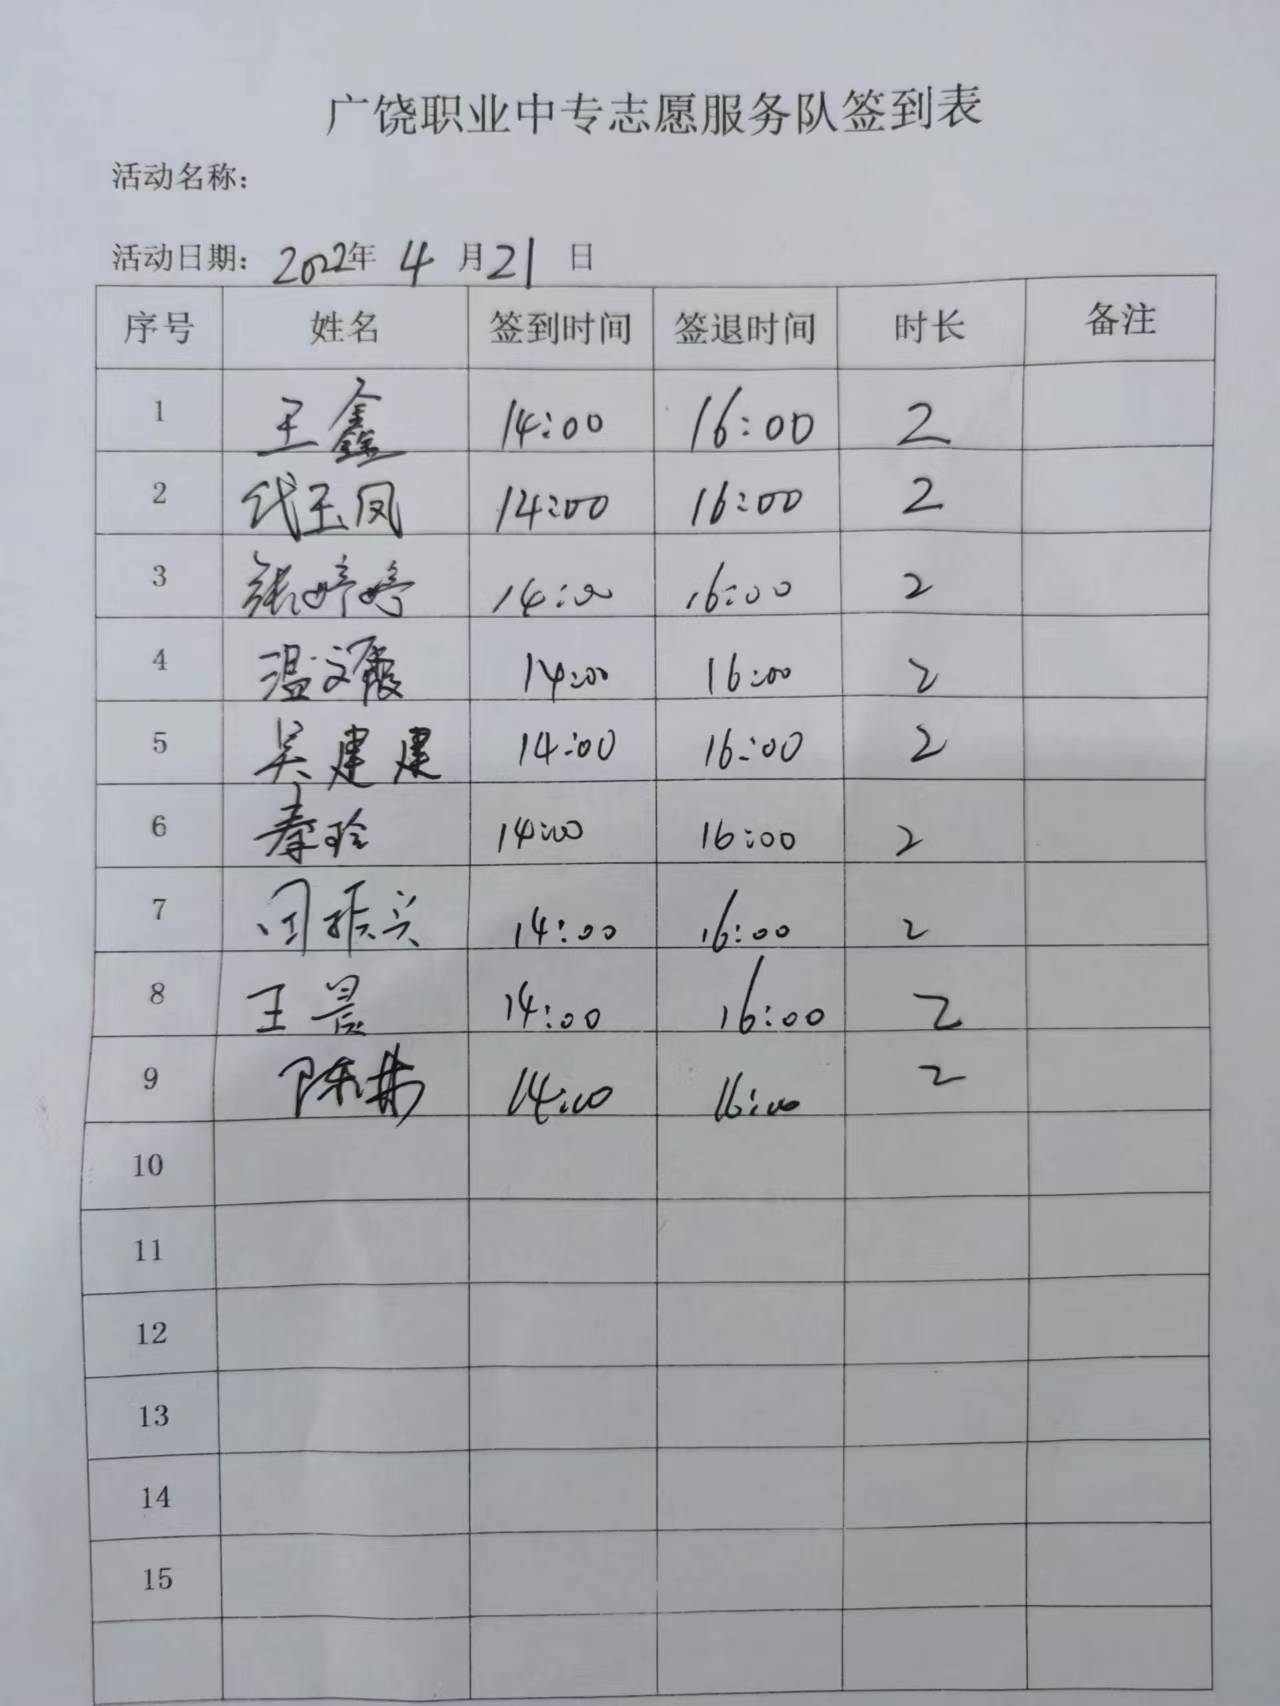 广饶职业中专志愿服务队签到表
活动名称：
活动日期：2022年 4 月 21 日
序号 姓名 签到时间 签退时间 时长 备注
1 王鑫 14:00 16:00 2
2 代玉凤 14:00 16:00 2
3 张婷婷 14:00 16:00 2
4 温文霞 14:00 16:00 2
5 吴建建 14:00 16:00 2
6 秦玲 14:00 16:00 2
7 14:00 16:00 2
8 王晨 14:00 16:00 2
9 14:00 16:00 2
10
11
12
13
14
15